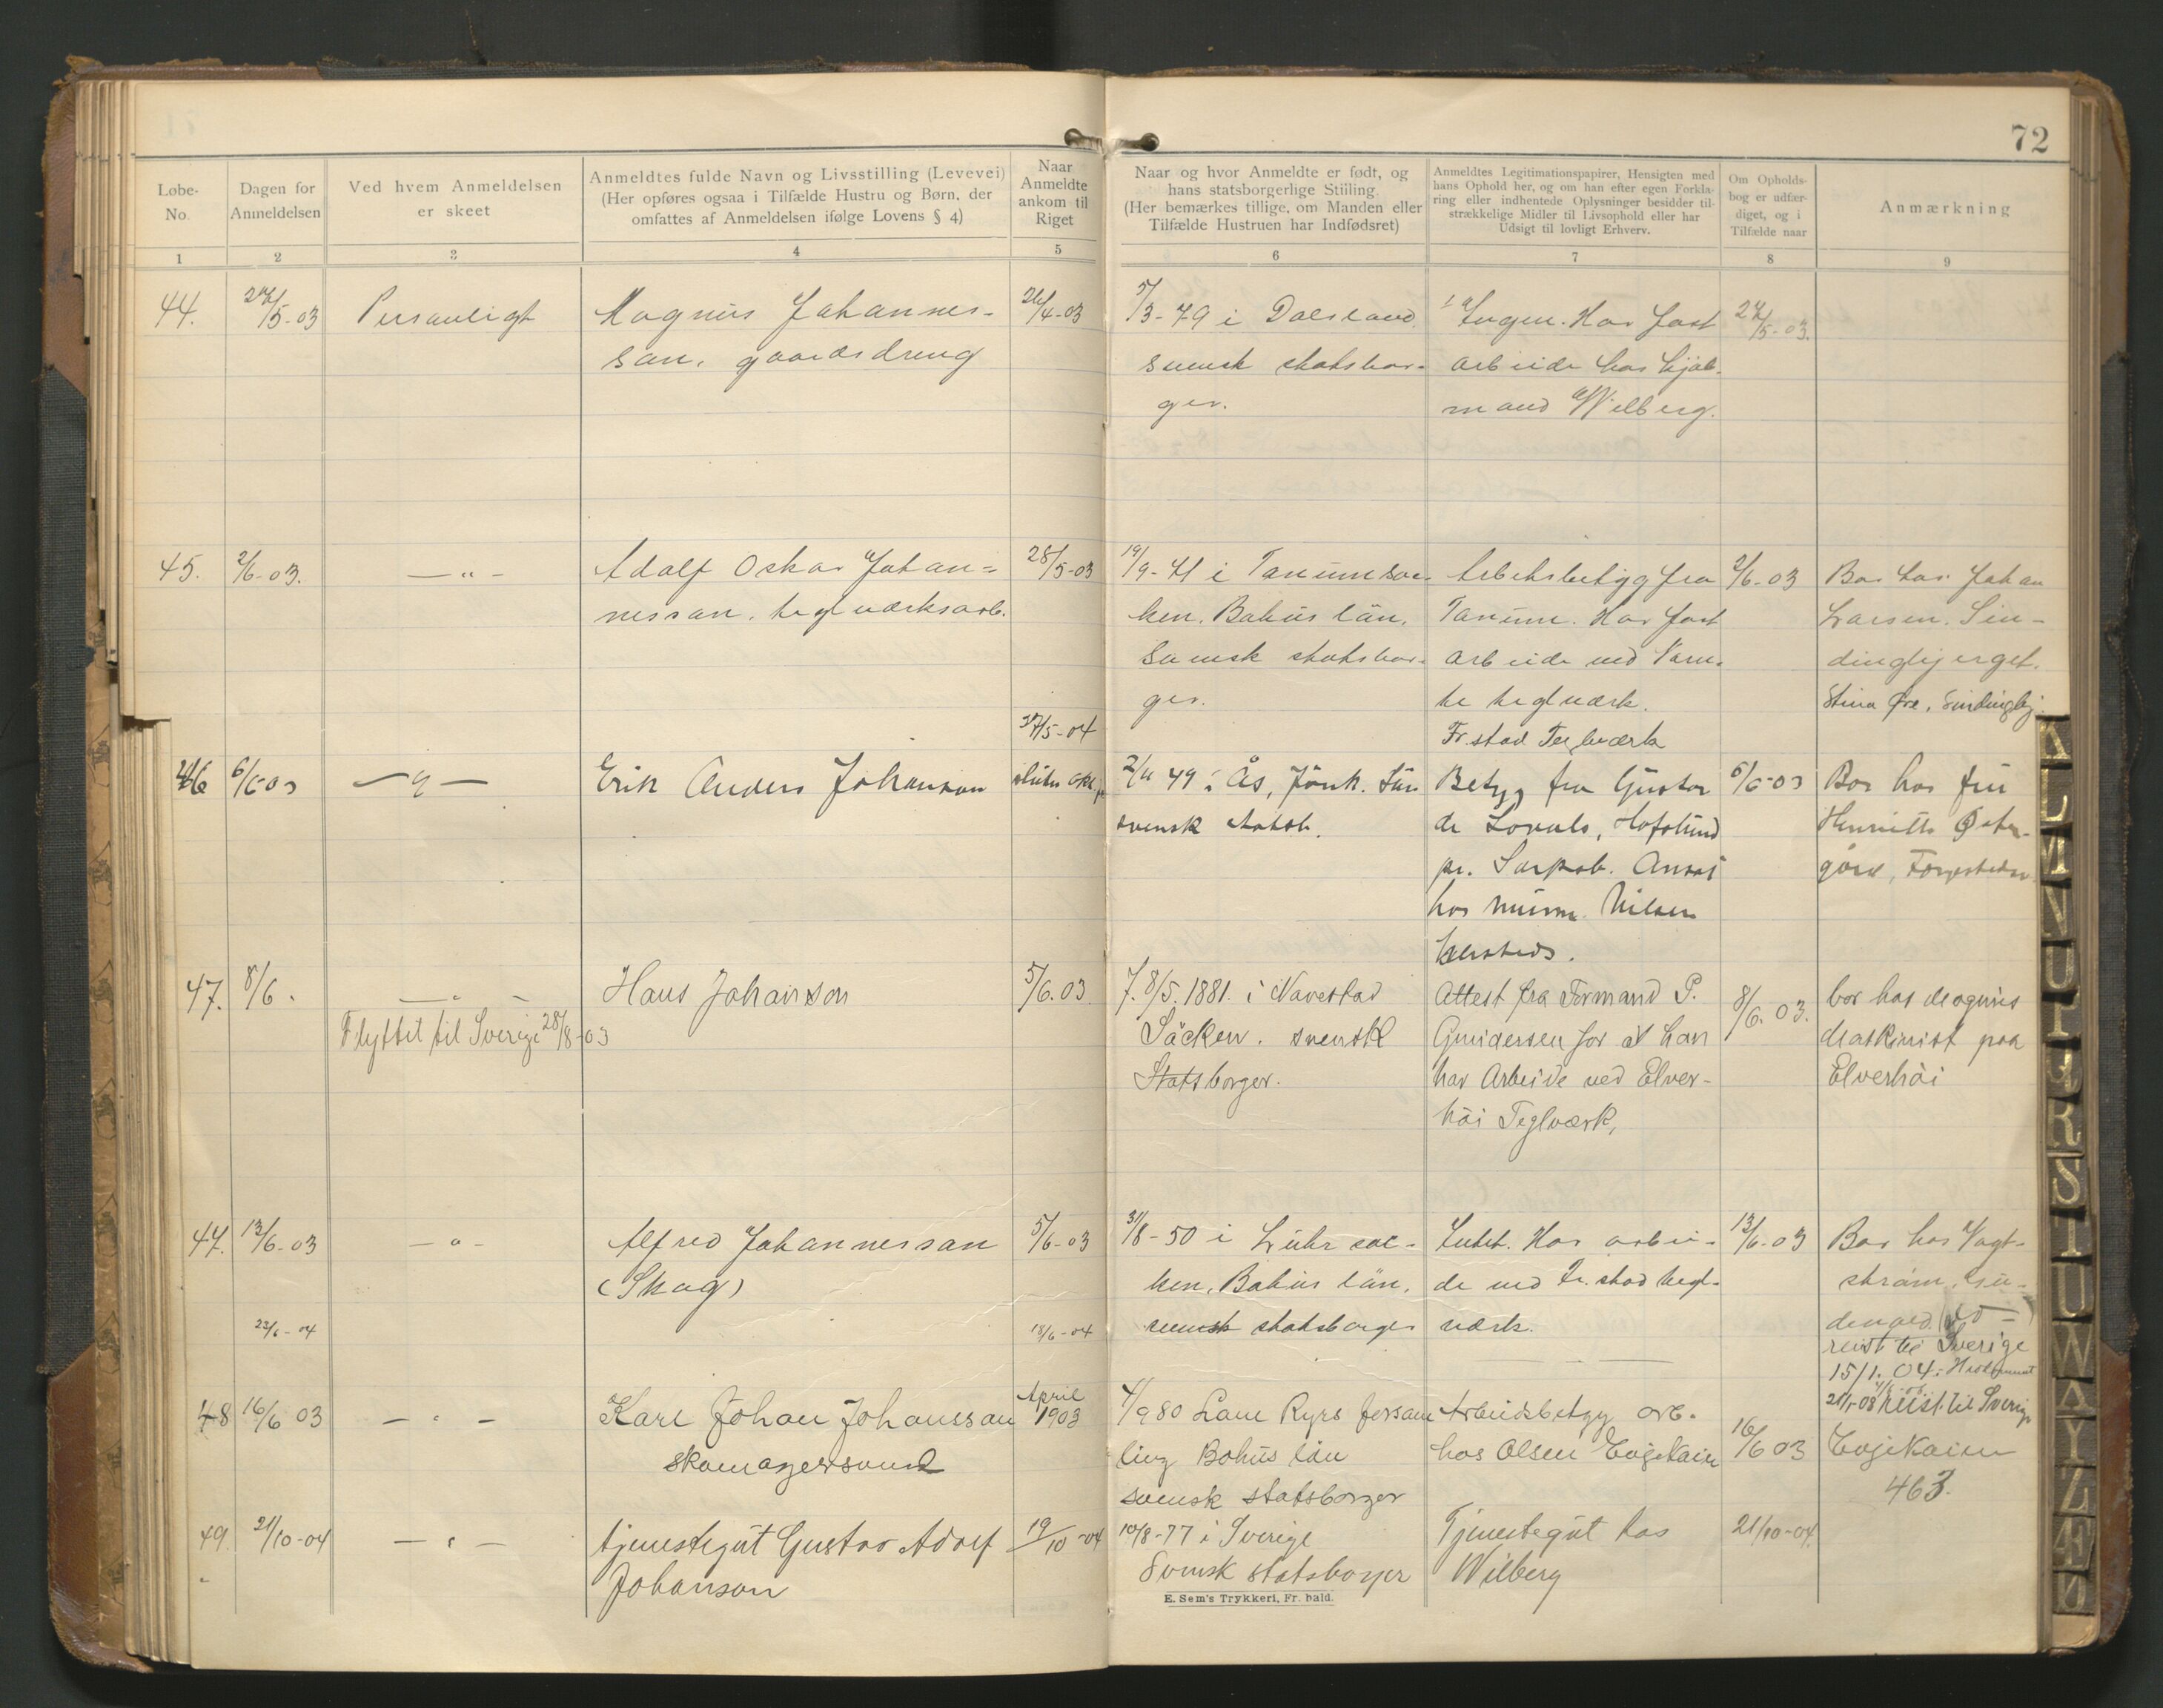 72
Løbe-No.
Dagen for Anmeldelsen
Ved hvem Anmeldelsen er skeet
Anmeldtes fulde Navn og Livsstilling (Levevei)
(Her opføres ogsaa i Tilfælde Hustru og Børn, der
omfattes af Anmeldelsen ifølge Lovens § 4)
Naar Anmeldte ankom til Riget
Naar og hvor Anmeldte er født, og
hans statsborgerlige Stilling
(Her bemærkes tillige, om Manden eller
Tilfælde Hustruen har Indfødsret)
Anmeldtes Legitimationspapirer, Hensigten med
hans Ophold her, og om han efter egen Forkla-
ring eller indhentede Oplysninger besidder til-
strækkelige Midler til Livsophold eller har
Udsigt til lovligt Erhverv.
Om Opholds-
bog er udfær-
diget, og i
Tilfælde naar
Anmærkning
1 2 3 4 5 6 7 8 9
44.
27/5-03
Personligt
Magnus Johannes-
son, gaardsdreng
26/4-03
5/3-79 i Dalsland
svensk statsbor-
ger.
Ingen. Har fast
arbeide hos
mand Wilberg.
27/5-03.
45.
2/6-03.
— " —
Adolf Oskar Johan=
nesson, teglværksarb.
28/5-03
19/9-41 i Tanum soc-
ken, Bahus län,
Svensk statsbor-
ger.
Arbetsbetyg fra
Tanum. Har fast
arbeide ved
teglværk.
Fr.stad Teglværk
2/6-03
Bor hos Johan
Larsen, Sin-
dingbjerget.
Stina Øre, Sindingbj.
27/5-04
46
6/6-03
— " —
Erik Anders Johanson
2/11 49 i Ås, Jönk. Län
svensk statsb.
Betyg fra Gustav
de Lorals, Hafslund
pr. Sarpsb. Ansat
hos murm. Nilsen
6/6-03
Bor hos fru
Henriette Øster-
gård,
47.
8/6.
— " —
Flyttet til Sverige 28/8-03
Hans Johanson
5/6.03.
f. 8/5.1881. i Navestad
Säcken. svensk
Statsborger.
Attest fra Formand P.
Gundersen for at han
har Arbeide ved Elver-
høi Teglværk,
8/6.03.
bor hos Magnus
Maskinist paa
Elverhøi
47.
13/6-03
— " —
Alfred Johannesson
(Skog)
5/6-03
31/8-50 i Luhr soc-
ken, Bahus län,
svensk statsborger
Intet. Har arbei-
de ved Fr.stad tegl-
værk.
13/6-03
Bor hos Vogt-
strøm,
reist til Sverige
15/1.04.
23/6-04
18/6-04
reist til Sverige
48
16/6 03
— " —
Karl Johan Johansson
skomagersvend
April
1903
4/9 80 Lane Ryrs forsam
ling Bohus län
svensk statsborger
Arbeidsbetyg arb.
hos Olsen Evjekaien
16/6 03
Evjekaien
463.
49.
21/10-04
— " —
tjenestegut Gustav Adolf
Johanson
19/10-04
10/8-77 i Sverige
Svensk statsborger
Tjenestegut hos
Wilberg
21/10-04.
E. Sem's Trykkeri, Fr.hald.